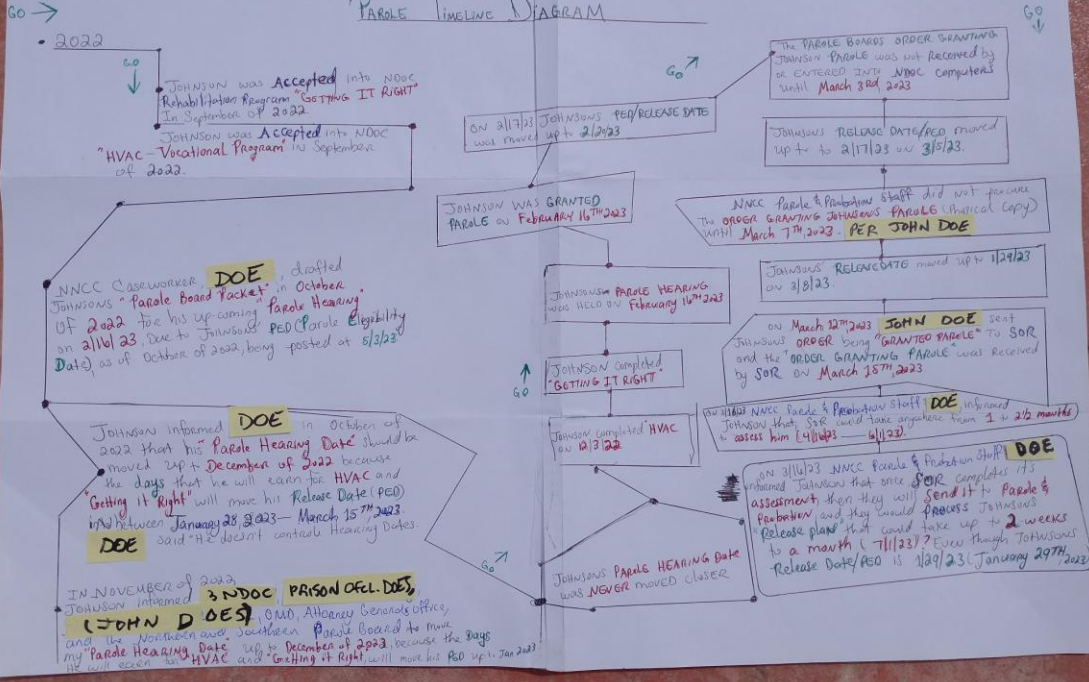 GO →
PAROLE TIMELINE DIAGRAM
GO
• 2022
GO
JOHNSON was Accepted into NDOC
Rehabilitation Program "GETTING IT RIGHT"
In September of 2022.
JOHNSON was Accepted into NDOC
"HVAC-Vocational Program" in September
of 2022.
NNCC Caseworker DOE, drafted
JOHNSONS "Parole Board Packet" in October
of 2022 for his up-coming "Parole Hearing"
on 2/16/23, Due to JOHNSONS' PED (Parole Eligibility
Date), as of October of 2022, being posted at 5/3/23
JOHNSON informed DOE in October of
2022 that his "Parole Hearing Date" should be
moved up to December of 2022 because
the days that he will earn for HVAC and
"Getting it Right" will move his Release Date (PED)
between January 28, 2023 - March 15TH, 2023.
DOE said "He doesn't controle Hearing Dates.
IN NOVEMBER of 2022
JOHNSON informed 3 NDOC, PRISON OFCL. DOES,
(JOHN DOES), OMD, Attorney Generals office,
and the Northern and Southern Parole Board to move
my "Parole Hearing Date" up to December of 2022, because the Days
He will earn for HVAC and "Getting it Right, will move his PED up to Jan 2023
GO
JOHNSONS PAROLE HEARING Date
was NEVER moved closer
JOHNSON completed HVAC
on 12/3/22
GO
JOHNSON completed
"GETTING IT RIGHT"
JOHNSONS PAROLE HEARING
was HELD ON February 16TH 2023
JOHNSON WAS GRANTED
PAROLE on FEBRUARY 16TH 2023
ON 2/17/23 JOHNSONS PED/RELEASE DATE
was moved up to 2/20/23
GO
The PAROLE BOARDS ORDER GRANTING
JOHNSON PAROLE was not Received by
or ENTERED INTO NDOC computers
until March 3rd, 2023
JOHNSONS RELEASE DATE/PED moved
up to to 2/17/23 on 3/5/23.
NNCC Parole & Probation Staff did not procure
The ORDER GRANTING JOHNSONS PAROLE (Physical Copy)
until March 7TH, 2023. PER JOHN DOE
JOHNSONS' RELEASE DATE moved up to 1/29/23
on 3/8/23.
on March 12TH, 2023 JOHN DOE sent
JOHNSONS ORDER being "GRANTED PAROLE" TO SOR
and the "ORDER GRANTING PAROLE" was Received
by SOR ON March 15TH, 2023
NNCC Parole & Probation Staff DOE, informed
Johnson that, SOR could take anywhere from 1 to 2 1/2 months
to assess him
on 3/16/23 NNCC Parole & Probation Staff DOE
informed Johnson that once SOR completes its
assessment, then they will Send it to Parole &
Probation, and they would PROCESS JOHNSONS
"Release plan" that could take up to 2 weeks
to a month (7/1/23)? Even though JOHNSONS
Release Date/PED is 1/29/23 (January 29TH, 2023)